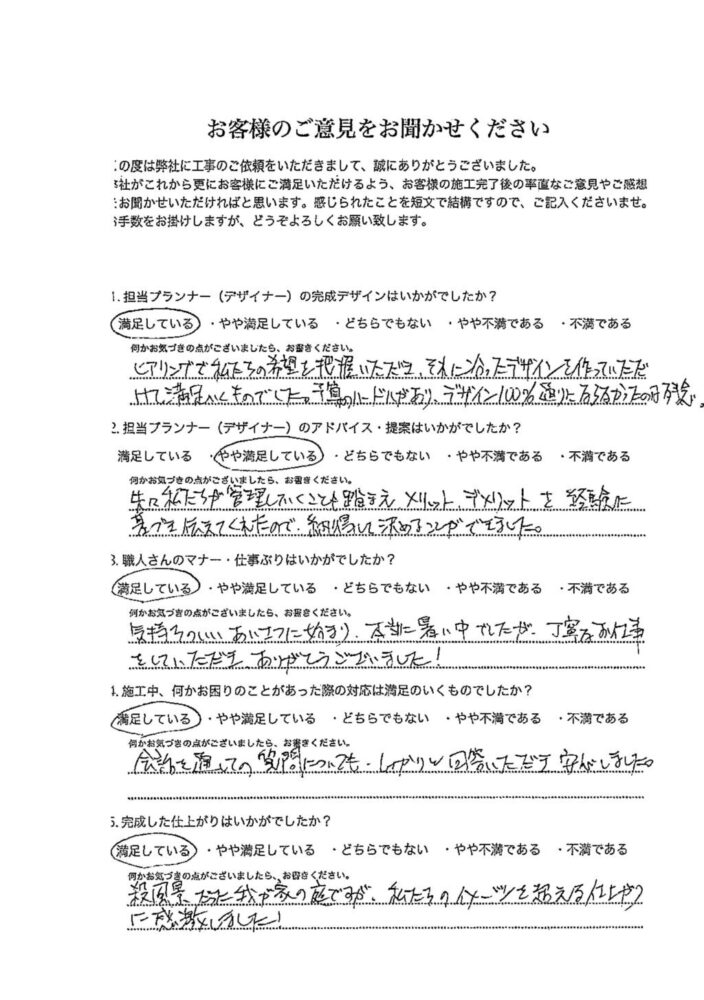 お客様のご意見をお聞かせください
の度は弊社に工事のご依頼をいただきまして、誠にありがとうございました。
社がこれから更にお客様にご満足いただけるよう、お客様の施工完了後の率直なご意見やご感想
お聞かせいただければと思います。感じられたことを短文で結構ですので、ご記入くださいませ。
手数をお掛けしますが、どうぞよろしくお願い致します。
1. 担当プランナー（デザイナー）の完成デザインはいかがでしたか？
満足している ・やや満足している ・どちらでもない ・やや不満である ・不満である
何かお気づきの点がございましたら、お書きください。
ヒアリングで私たちの希望を把握いただき、それに合ったデザインを作っていただ
けて満足いくものでした。予算のハードルがあり、デザイン100%通りにならなかったのは残念。
2. 担当プランナー（デザイナー）のアドバイス・提案はいかがでしたか？
満足している ・やや満足している ・どちらでもない ・やや不満である ・不満である
何かお気づきの点がございましたら、お書きください。
先々私たちが管理していくことも踏まえ メリット、デメリットを 経験に
基づき伝えてくれたので、納得して決めることができました。
3. 職人さんのマナー・仕事ぶりはいかがでしたか？
満足している ・やや満足している ・どちらでもない ・やや不満である ・不満である
何かお気づきの点がございましたら、お書きください。
気持ちのいい あいさつに始まり、本当に暑い中でしたが、丁寧なお仕事
をしていただき ありがとうございました！
4. 施工中、何かお困りのことがあった際の対応は満足のいくものでしたか？
満足している ・やや満足している ・どちらでもない ・やや不満である ・不満である
何かお気づきの点がございましたら、お書きください。
会話を通しての 質問についても、しっかりと回答いただき 安心しました。
5. 完成した仕上がりはいかがでしたか？
満足している ・やや満足している ・どちらでもない ・やや不満である ・不満である
何かお気づきの点がございましたら、お書きください。
殺風景だった我が家の庭ですが、私たちのイメージを超える仕上がり
に感激しました！